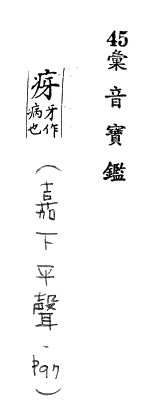 45彙音寶鑑
疨
牙作
病也
（嘉下平聲）